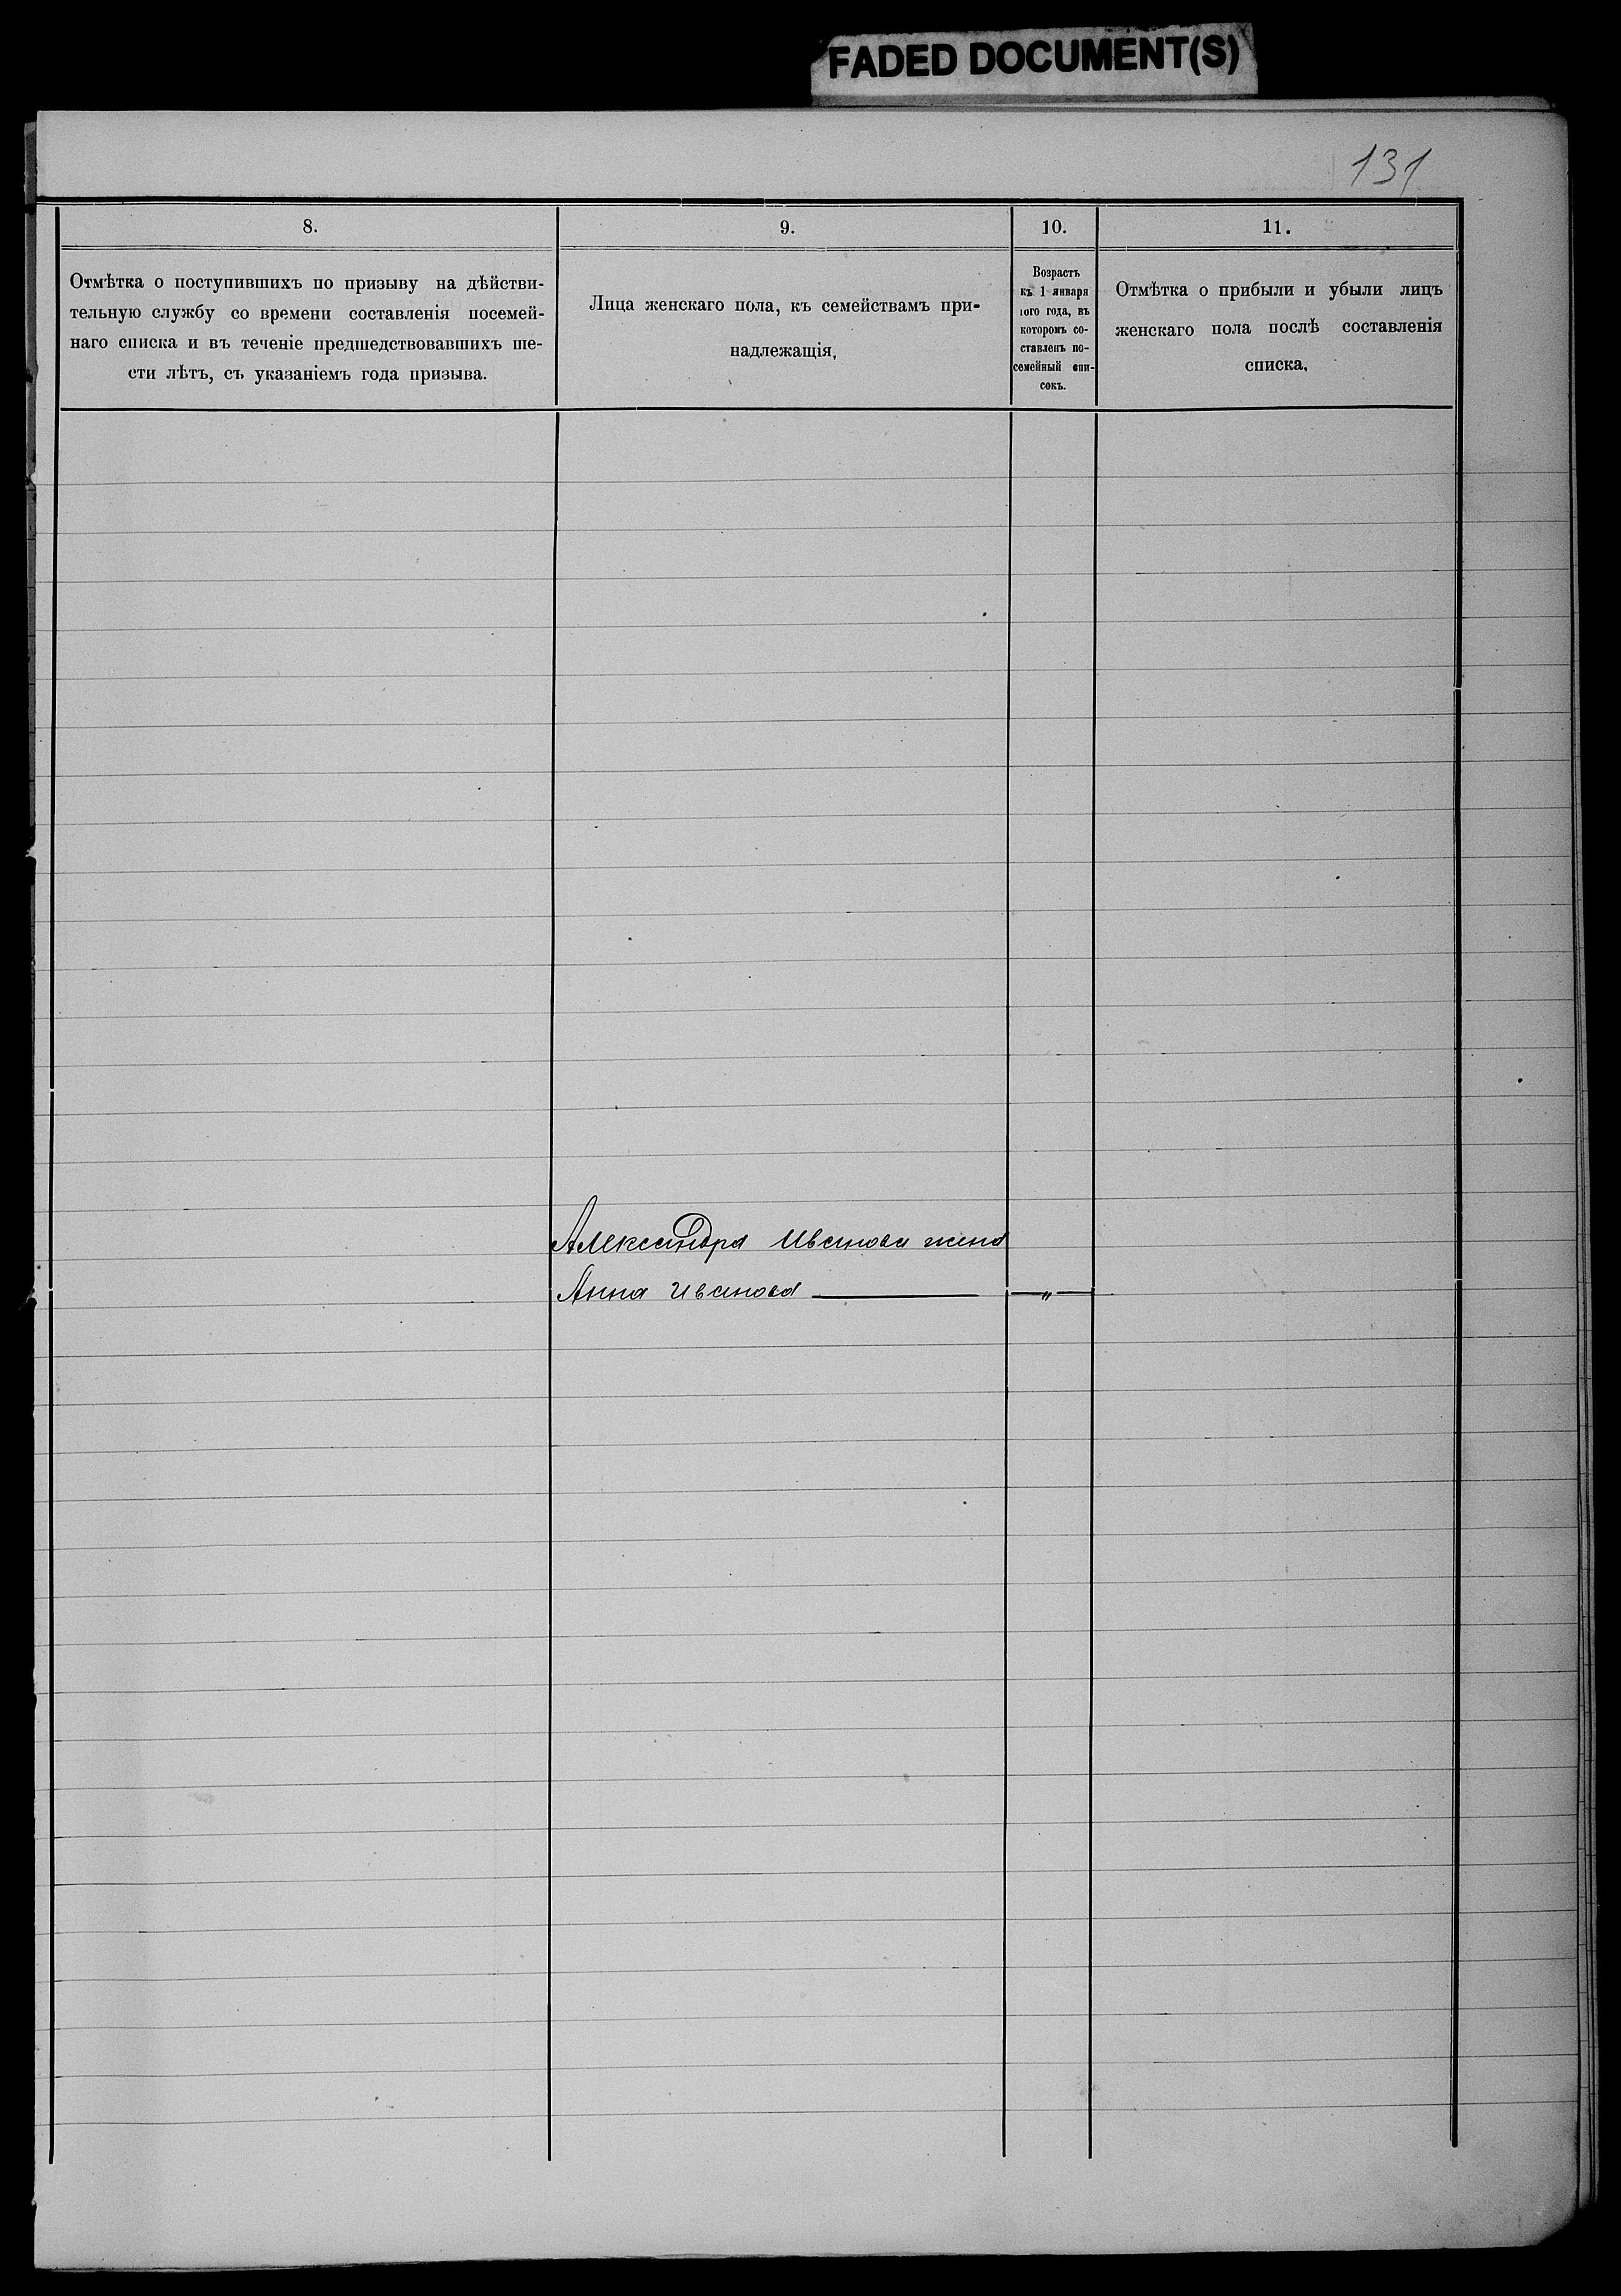 FADED DOCUMENT(S)
131
8.
9.
10.
11.
Отмѣтка о поступившихъ по призыву на дѣйстви-
тельную службу со времени составленія посемей-
наго списка и въ теченіе предшедствовавшихъ ше-
сти лѣтъ, съ указаніемъ года призыва.
Лица женскаго пола, къ семействамъ при-
надлежащія,
Возрастъ
къ 1 января
того года, въ
которомъ со-
ставленъ по-
семейный спи-
сокъ.
Отмѣтка о прибыли и убыли лицъ
женскаго пола послѣ составленія
списка.
Александра Иванова жена
Анна Иванова — — „ —